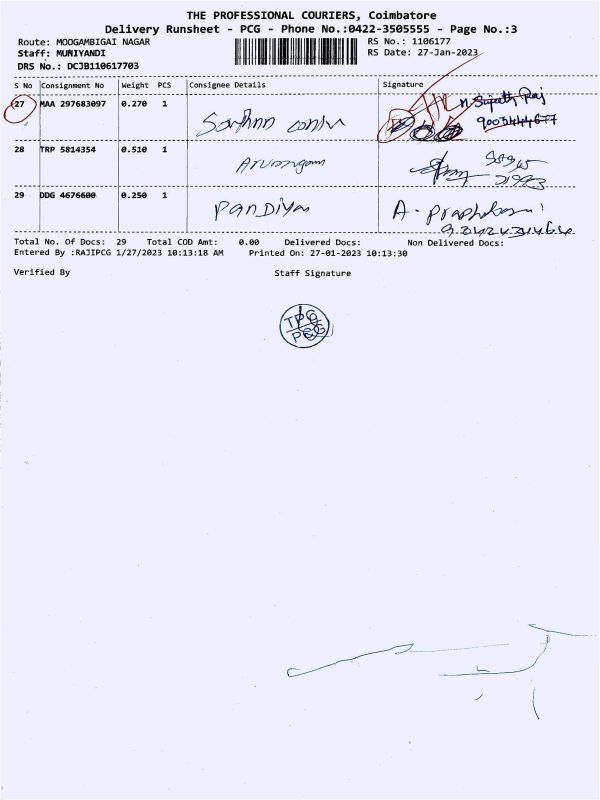 THE PROFESSIONAL COURIERS, Coimbatore
Delivery Runsheet - PCG - Phone No.:0422-3505555 - Page No.:3
Route: MOOGAMBIGAI NAGAR RS No.: 1106177
Staff: MUNIYANDI RS Date: 27-Jan-2023
DRS No.: DCJB110617703
S No Consignment No Weight PCS Consignee Details Signature
27 MAA 297683097 0.270 1
28 TRP 5814354 0.510 1
29 DDG 4676600 0.250 1 Pandiyan
Total No. Of Docs: 29 Total COD Amt: 0.00 Delivered Docs: Non Delivered Docs:
Entered By :RAJIPCG 1/27/2023 10:13:18 AM Printed On: 27-01-2023 10:13:30
Verified By Staff Signature